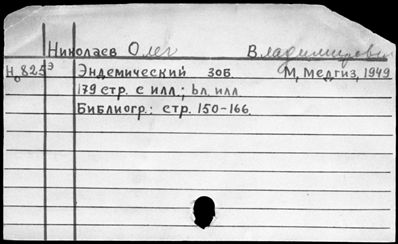 Николаев Олег Владимирович
Н 825э Эндемический зоб. М, Медгиз, 1949
179 стр. с илл.; 6л. илл.
Библиогр.: стр. 150-166.